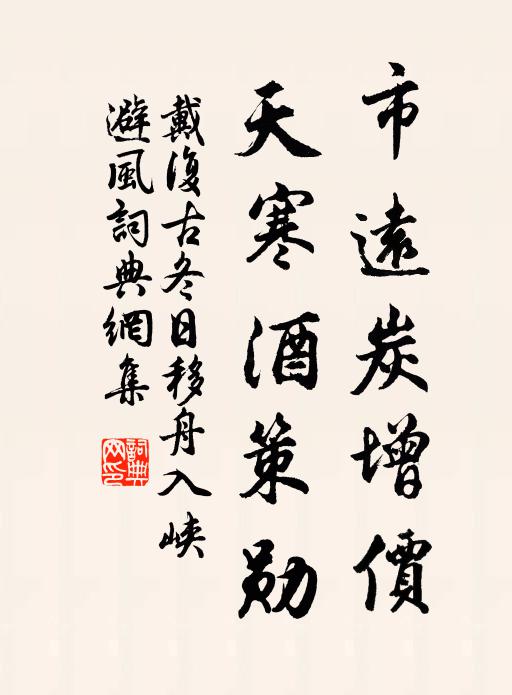 市遠炭增價
天寒酒策勋
戴復古冬日移舟入峽
避風詞典網集
詞典
网印